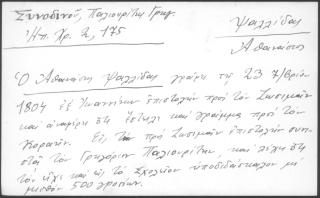 Συνοδινοῦ, Παλιουρίτης Γρηγ.
Ἠπ. Χρ. 2, 175
Ψαλλίδας
Ἀθανάσιος
Ὁ Ἀθανάσιος Ψαλλίδας γράφει τῇ 23 7/βρίου
1804 ἐξ Ἰωαννίνων ἐπιστολὴν πρὸς τὸν Ζωσιμᾶν
καὶ ἀναφέρει ὅτι ἔστειλε καὶ γράμμα πρὸς τὸν
Κοραῆν. Εἰς τὴν πρὸς Ζωσιμᾶν ἐπιστολὴν συνι-
στᾷ τὸν Γρηγόριον Παλιουρίτην, καὶ λέγει ὅτι
τὸν εἶχε καὶ εἰς τὸ Σχολεῖον ὑποδιδάσκαλον μὲ
μισθὸν 500 γροσίων.